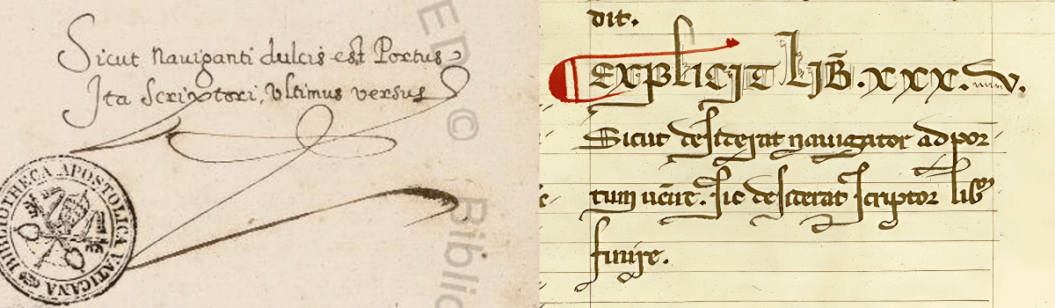 Sicut Naviganti dulcis est Portus
Ita Scriptori, Vltimus versus
BIBLIOTHECA APOSTOLICA VATICANA
ED © Biblio
dit.
Explicit lib. xxx.v.
Sicut desiderat nauigator ad por
tum uenire. sic desiderat scriptor lib
finire.